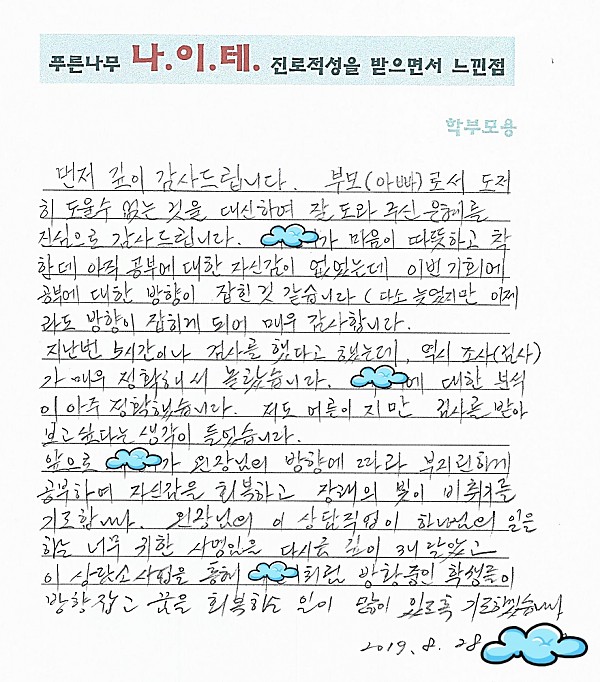 푸른나무 나.이.테. 진로적성을 받으면서 느낀점
학부모용
먼저 깊이 감사드립니다. 부모(아빠)로서 도저
히 도울수 없는 것을 대신하여 잘 도와 주신 은혜를
진심으로 감사드립니다. 가 마음이 따뜻하고 착
한데 아직 공부에 대한 자신감이 없었는데 이번 기회에
공부에 대한 방향이 잡힌것 같습니다 (다소 늦었지만 이제
라도 방향이 잡히게 되어 매우 감사합니다.
지난번 5시간이나 검사를 했다고 했는데, 역시 조사(검사)
가 매우 정확해서 놀랐습니다. 에 대한 분석
이 아주 정확했습니다. 저도 어른이지만 검사를 받아
보고 싶다는 생각이 들었습니다.
앞으로 가 원장님의 방향에 따라 부지런하게
공부하여 자신감을 회복하고 장래의 빛이 비춰기를
기도합니다. 원장님의 이 상담직업이 하나님의 일을
하는 너무 귀한 사명임을 다시금 깊이 깨달았고
이 상담소사업을 통해 처럼 방황중인 학생들이
방향잡고 꿈을 회복하는 일이 많이 있도록 기도하겠습니다
2019. 8. 28